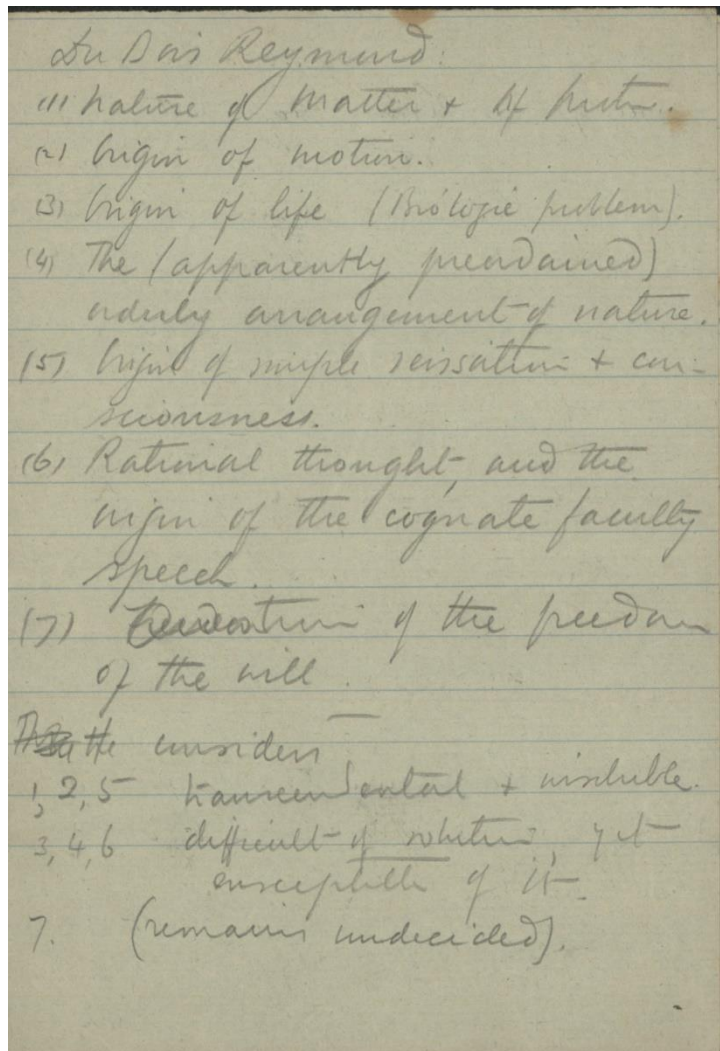 Du Bois Reymond:
(1) Nature of matter + of force.
(2) Origin of motion.
(3) Origin of life (Biologic problem).
(4) The (apparently preordained)
orderly arrangement of nature.
(5) Origin of simple sensation + con-
sciousness.
(6) Rational thought, and the
origin of the cognate faculty
speech.
(7) Question of the freedom
of the will.
He considers
1, 2, 5 transcendental + insoluble.
3, 4, 6 difficult of solution, yet
susceptible of it.
7. (remains undecided).